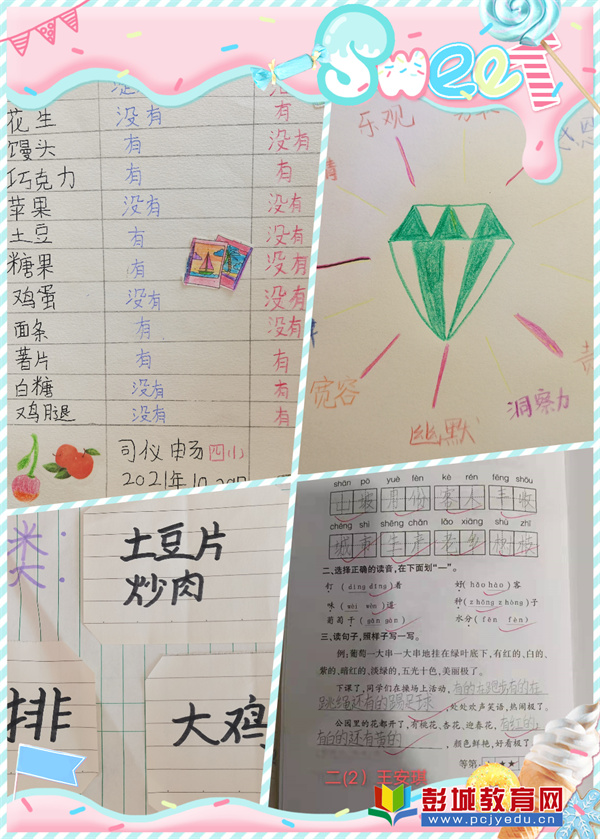 Sweet
花生 没有 有
馒头 有 没有
巧克力 有 有
苹果 没有 没有
土豆 有 没有
糖果 有 没有
鸡蛋 没有 没有
面条 有 没有
薯片 有 有
白糖 没有 有
鸡腿 没有 有
司仪畅 四(1)
2021年10
乐观
宽容
幽默
洞察力
类:
土豆片
炒肉
排
大鸡
shān pō yuè fèn kè rén fēng shōu
山坡 月份 客人 丰收
chéng shì shēng chǎn lǎo xiāng shù zhī
城市 生产 老乡
二、选择正确的读音,在下面划“—”。
钉(dīng dìng)着 好(hǎo hào)客
味(wèi wèn)道 种(zhǒng zhòng)子
葡萄干(gān gàn) 水分(fèn fēn)
三、读句子,照样子写一写。
例:葡萄一大串一大串地挂在绿叶底下,有红的、白的、
紫的、暗红的、淡绿的,五光十色,美丽极了。
下课了,同学们在操场上活动,有的在跑步有的在
跳绳还有的踢足球,处处欢声笑语,热闹极了。
公园里的花都开了,有桃花、杏花、迎春花,有红的
有白的还有黄的,颜色鲜艳,好看极了
等第 ★★
二(2)王安琪
彭城教育网
www.pcjyedu.cn